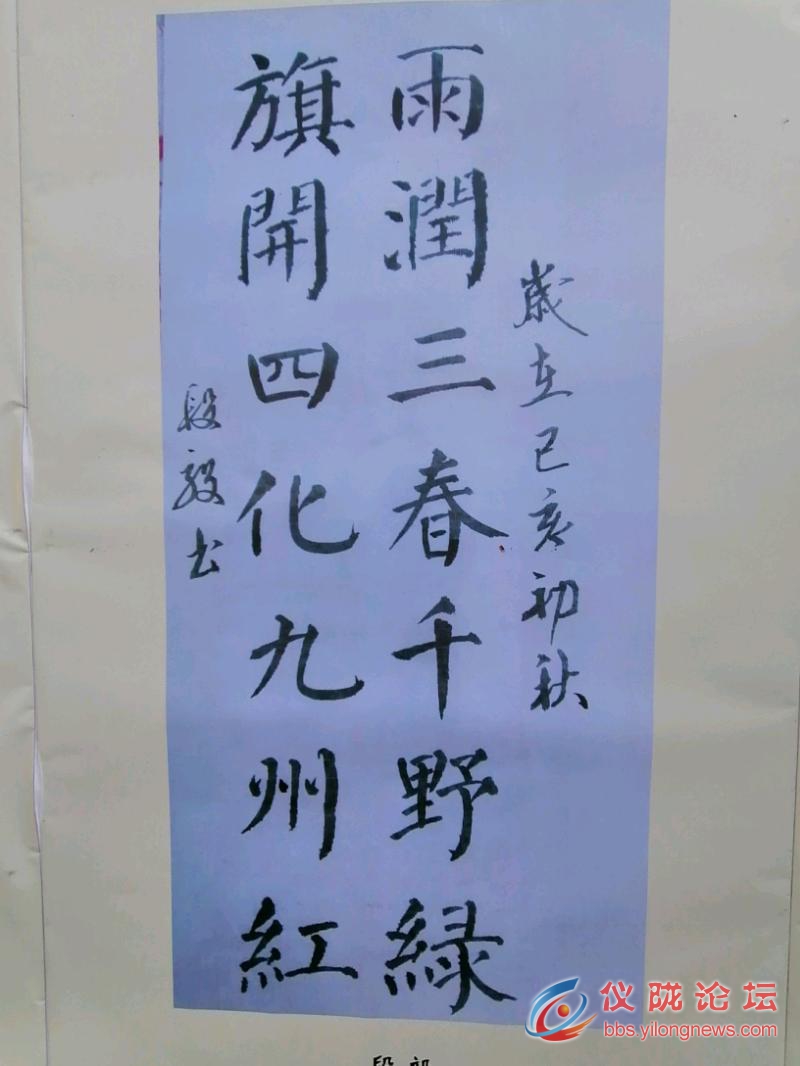 歲在己亥初秋
雨潤三春千野綠
旗開四化九州紅
段毅书
仪陇论坛
bbs.yilongnews.com